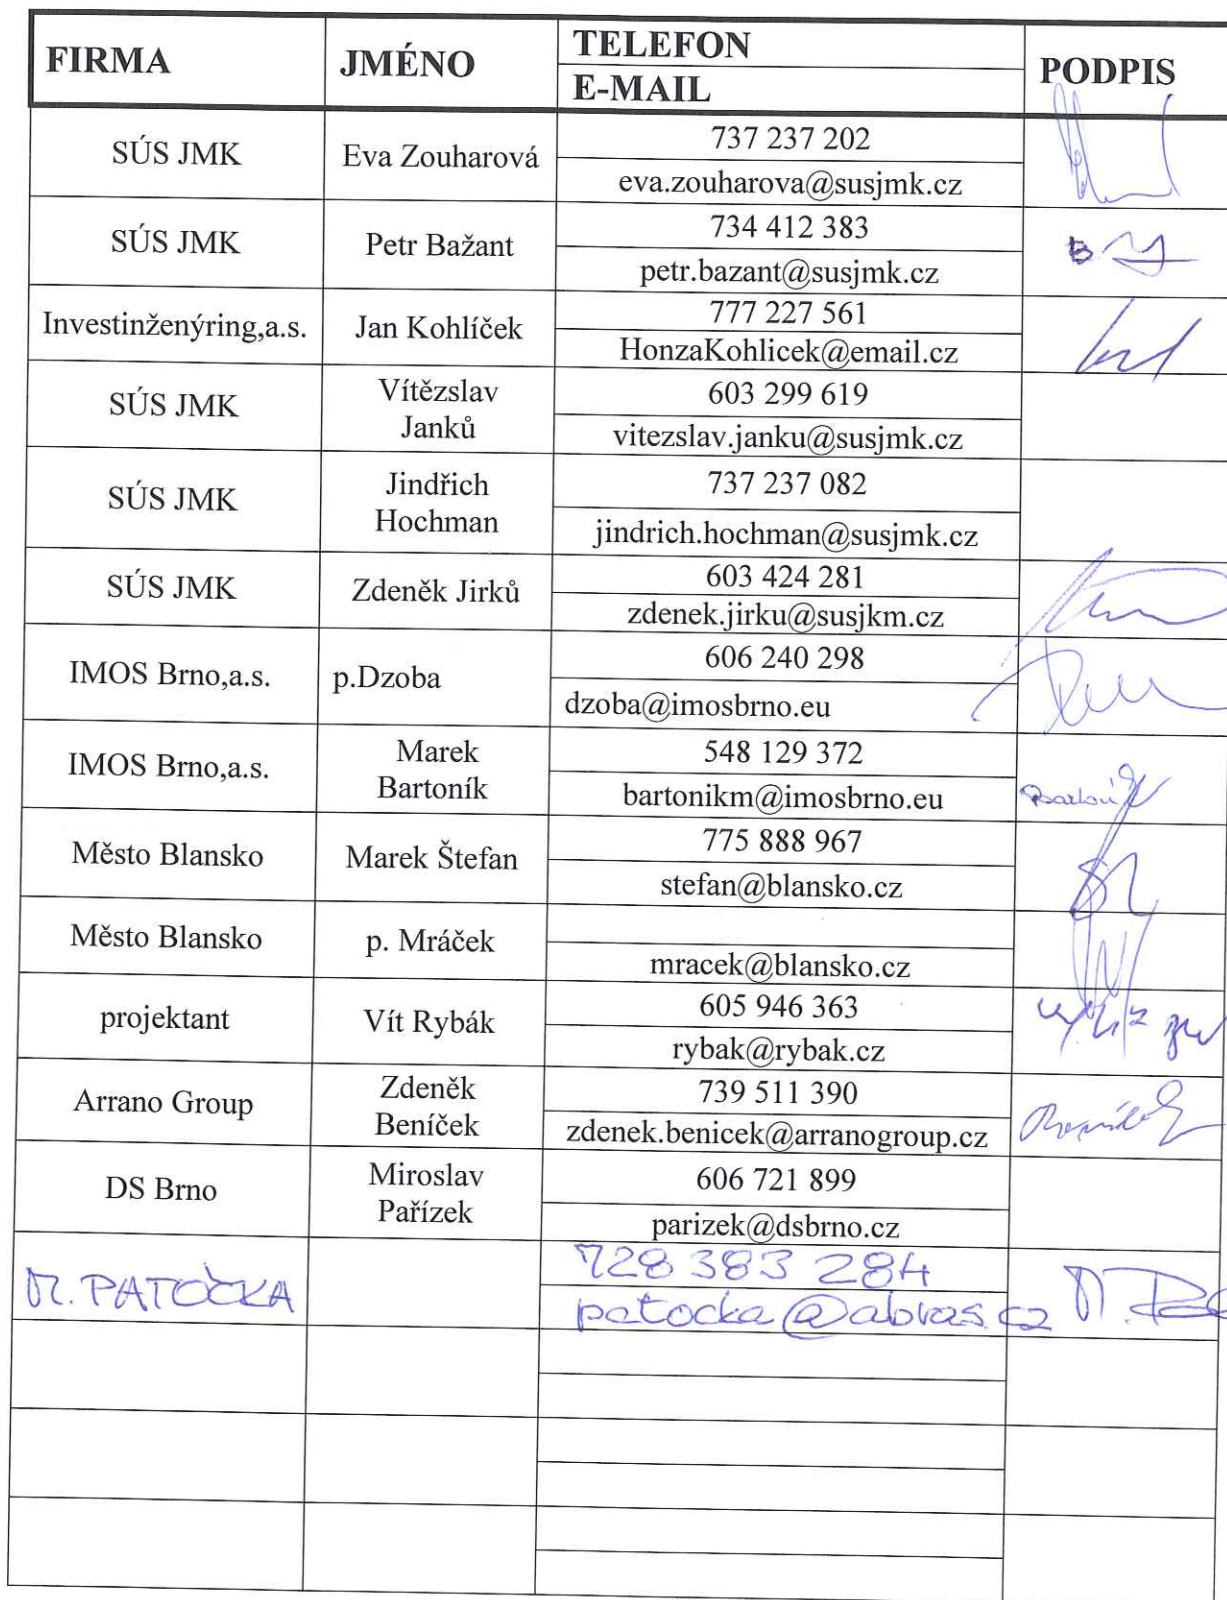 FIRMA
JMÉNO
TELEFON
E-MAIL
PODPIS
SÚS JMK
Eva Zouharová
737 237 202
eva.zouharova@susjmk.cz
SÚS JMK
Petr Bažant
734 412 383
petr.bazant@susjmk.cz
Investinženýring,a.s.
Jan Kohlíček
777 227 561
HonzaKohlicek@email.cz
SÚS JMK
Vítězslav
Janků
603 299 619
vitezslav.janku@susjmk.cz
SÚS JMK
Jindřich
Hochman
737 237 082
jindrich.hochman@susjmk.cz
SÚS JMK
Zdeněk Jirků
603 424 281
zdenek.jirku@susjkm.cz
IMOS Brno,a.s.
p.Dzoba
606 240 298
dzoba@imosbrno.eu
IMOS Brno,a.s.
Marek
Bartoník
548 129 372
bartonikm@imosbrno.eu
Město Blansko
Marek Štefan
775 888 967
stefan@blansko.cz
Město Blansko
p. Mráček
mracek@blansko.cz
projektant
Vít Rybák
605 946 363
rybak@rybak.cz
Arrano Group
Zdeněk
Beníček
739 511 390
zdenek.benicek@arranogroup.cz
DS Brno
Miroslav
Pařízek
606 721 899
parizek@dsbrno.cz
M. PATOČKA
728 383 284
patocka@abras.cz